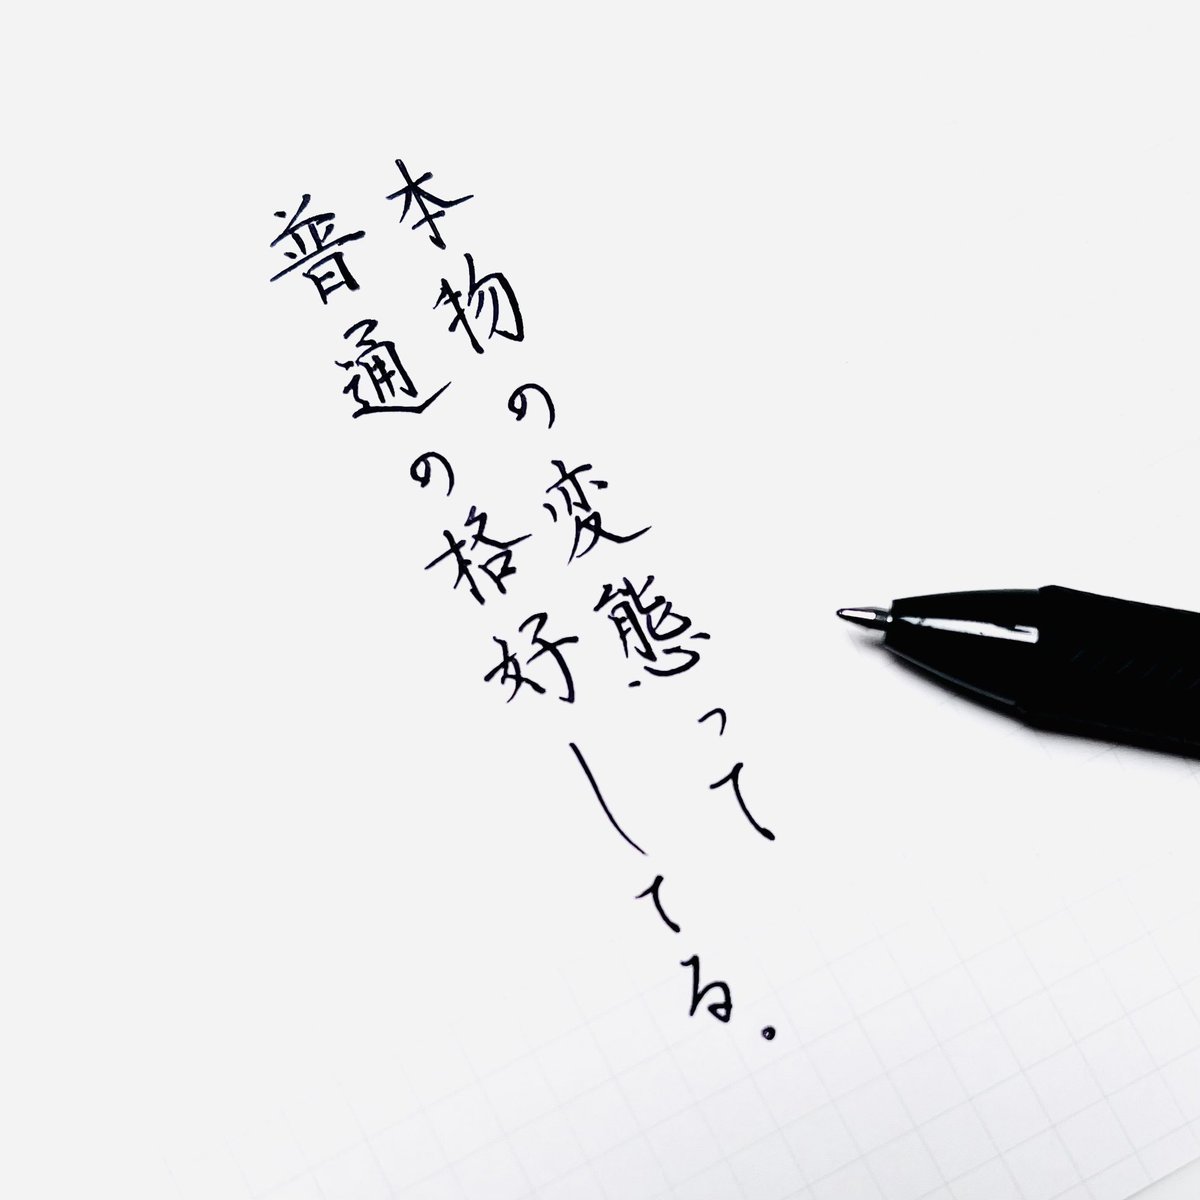 本物の変態って
普通の格好してる.